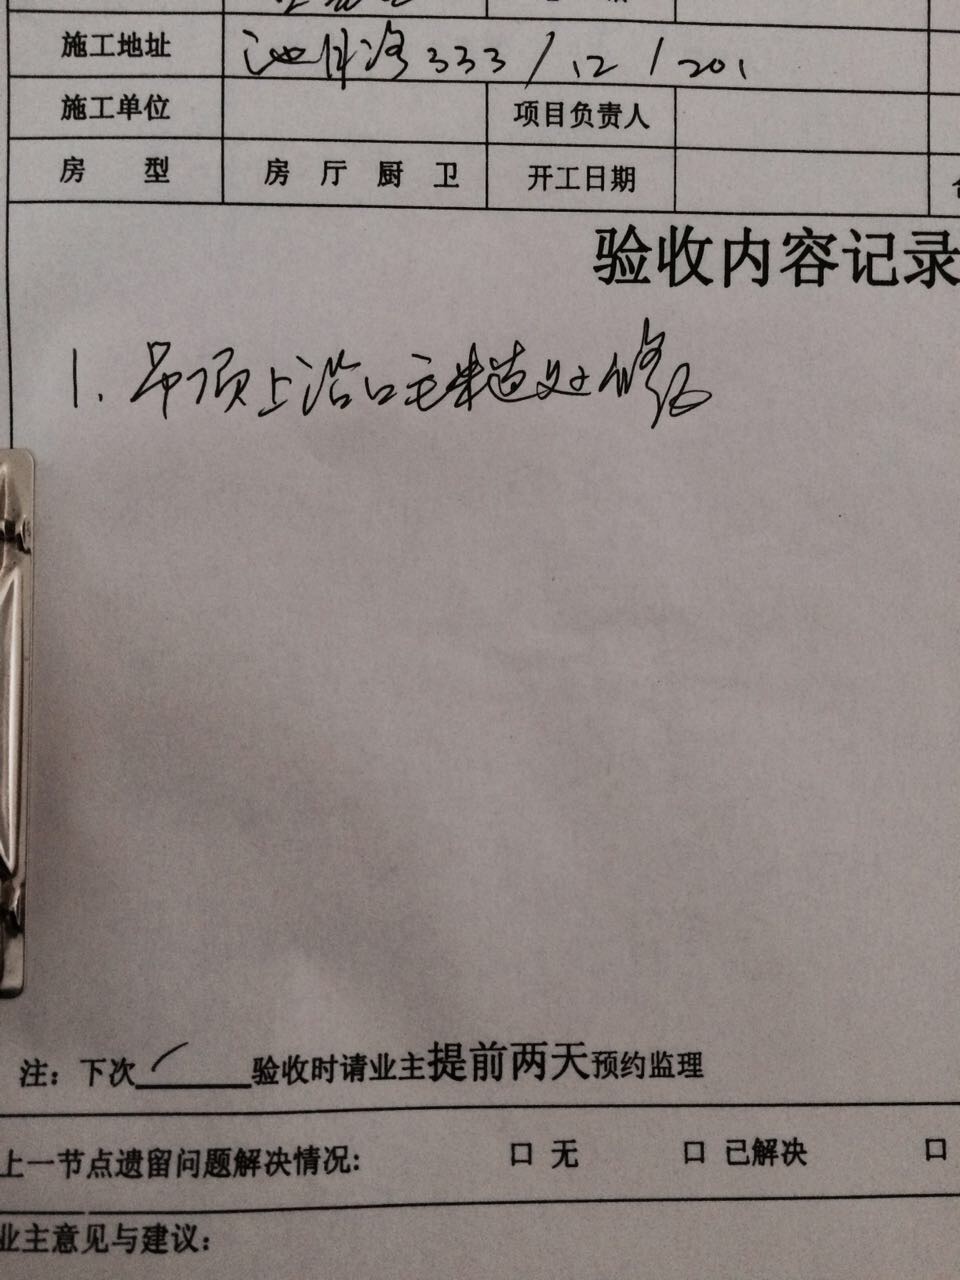 施工地址 池月路333/12/201
施工单位 项目负责人
房 型 房 厅 厨 卫 开工日期
验收内容记录
1. 吊顶上沿口毛糙处修
注：下次 / 验收时请业主提前两天预约监理
上一节点遗留问题解决情况: 口 无 口 已解决 口
业主意见与建议: